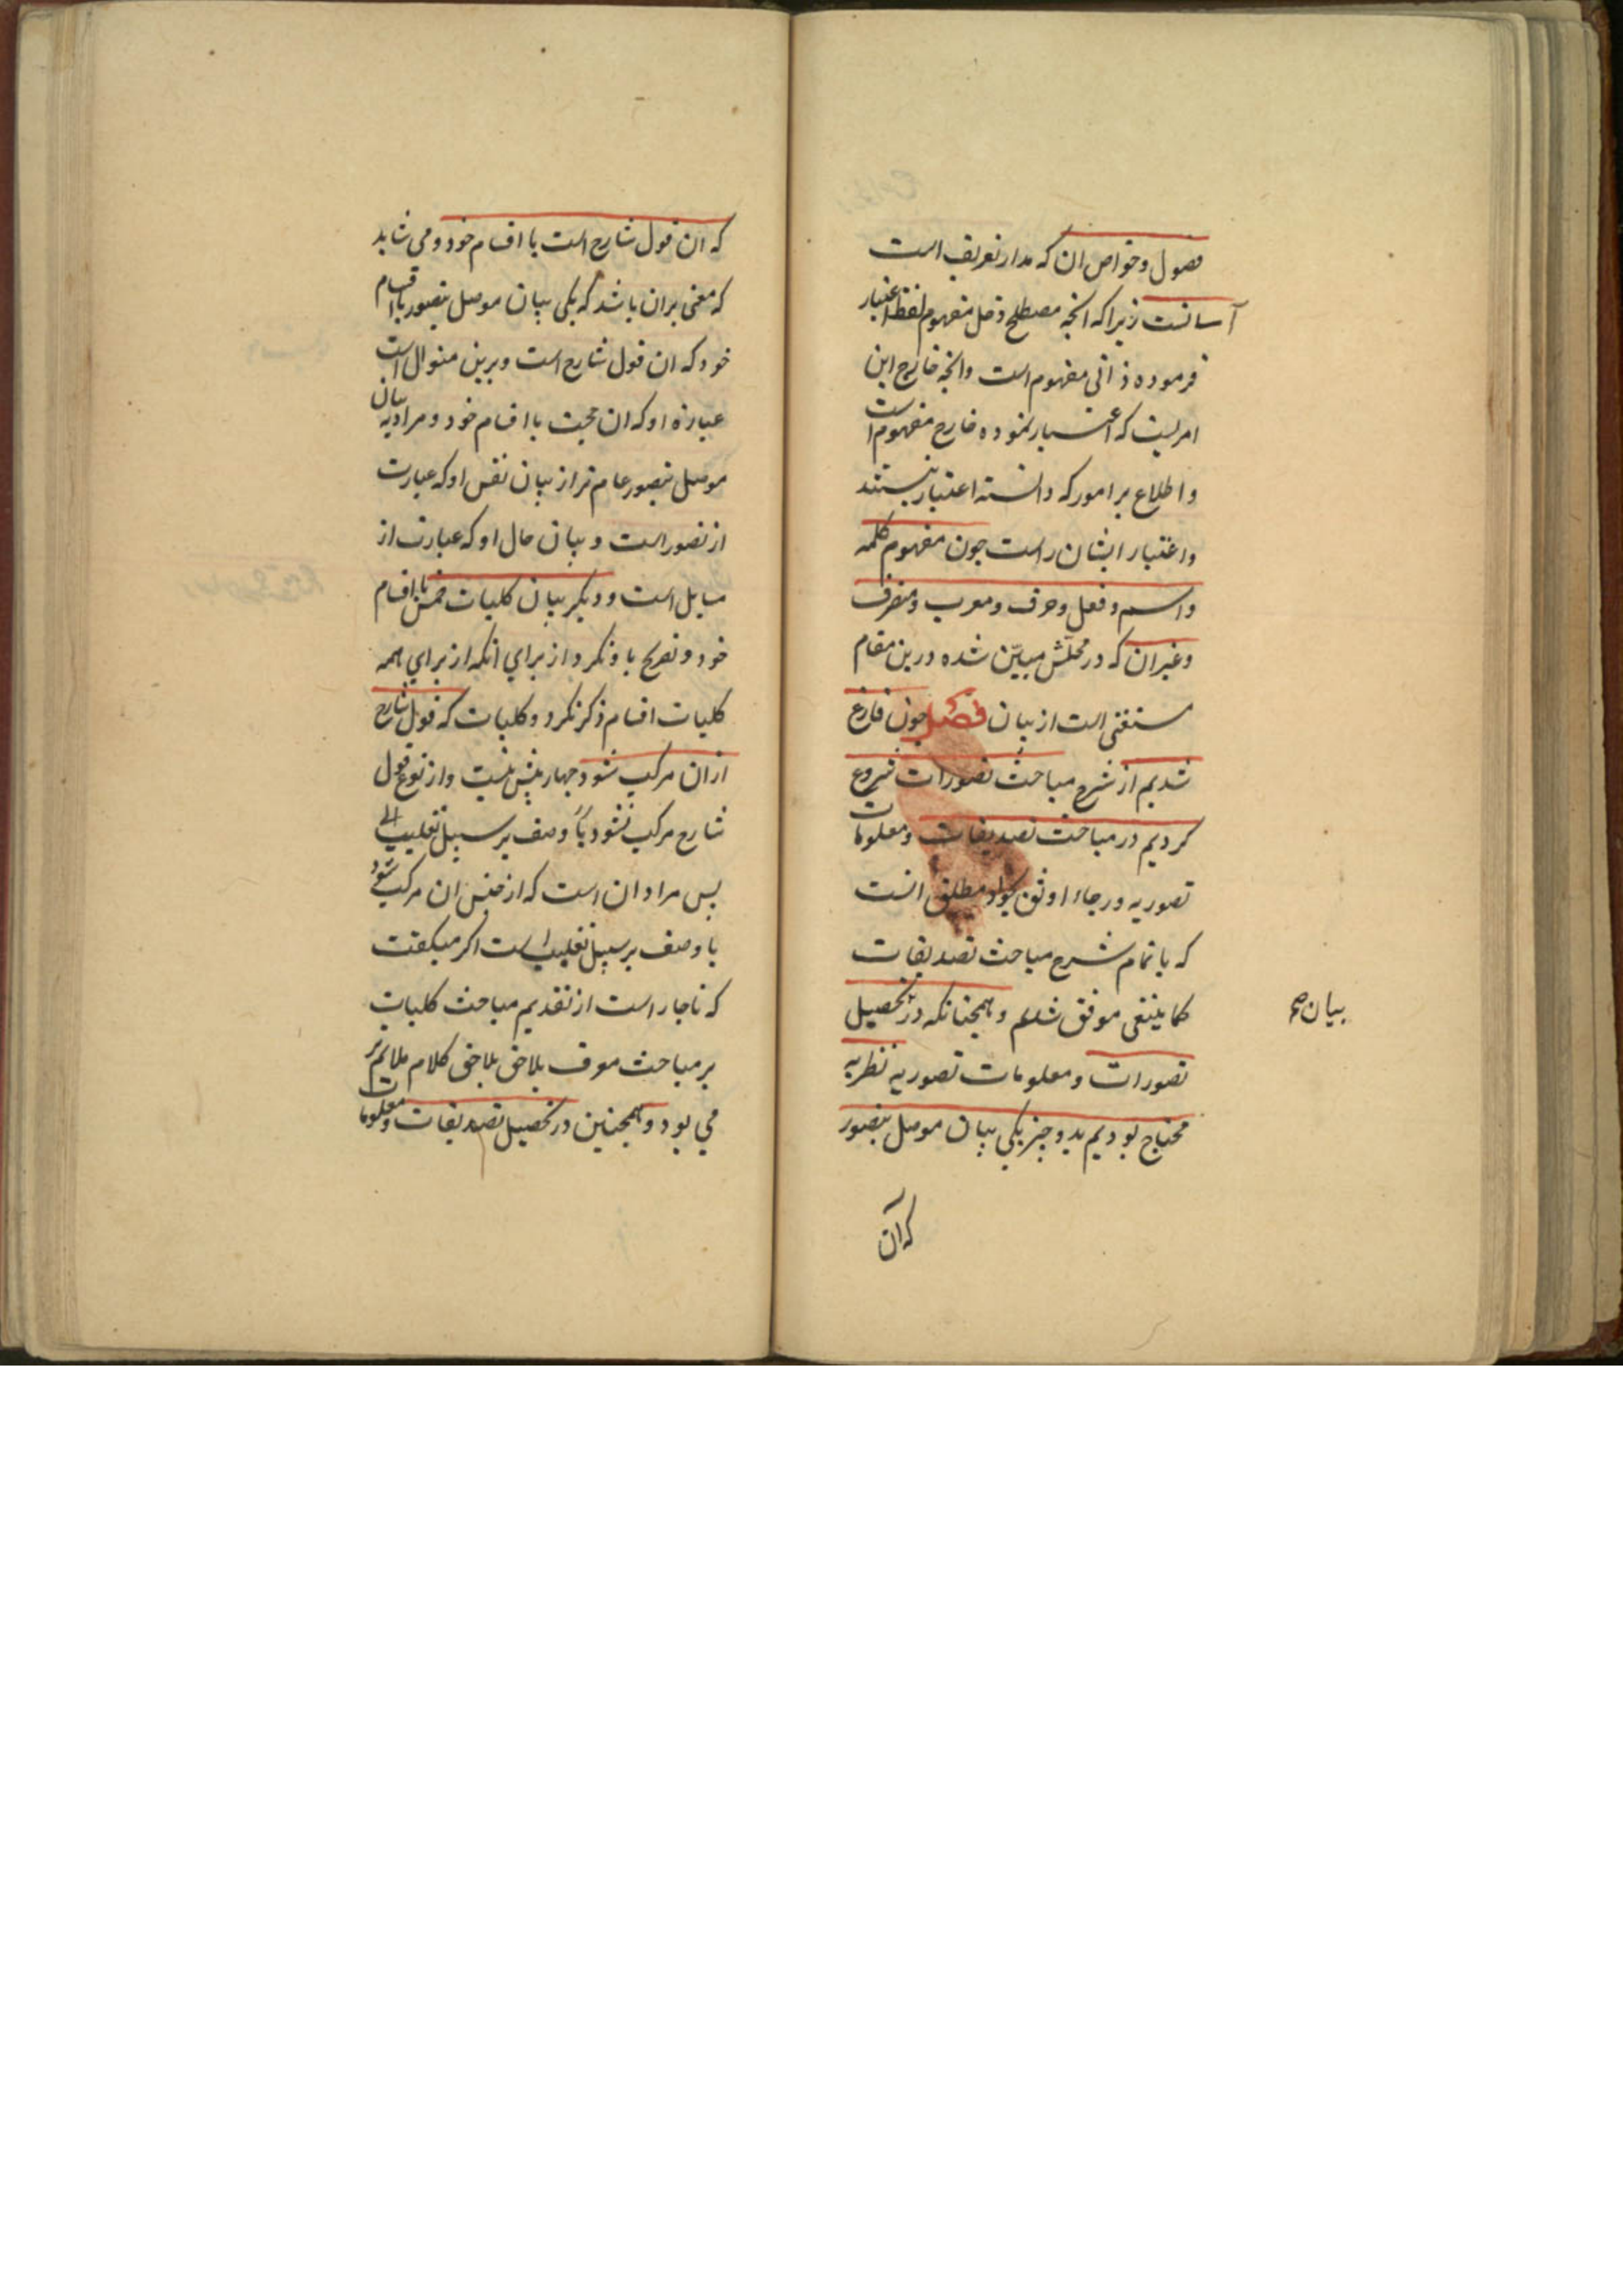 فصول وخواص ان که مدار تعریف است
آسانست زیرا که انچه مصطلح دخل مفهوم لفظ اعتبار
فرموده ذاتی مفهوم است وانچه خارج این
امریست که اعتبار نموده خارج مفهوم است
واطلاع بر امور که دانسته اعتبار نیستند
واعتبار ایشان راست چون مفهوم کلمه
واسم وفعل وحرف ومعرب ومنصرف
وغیران که در محلش مبیّن شده درین مقام
مستغنی است از بیان فصل چون فارغ
شدیم از شرح مباحث تصورات شروع
کردیم در مباحث تصدیقات ومعلومات
تصوریه ورجاء اوثق بجواد مطلق انست
که باتمام شرح مباحث تصدیقات
کما ینبغی موفق شدیم وهمچنانکه در تحصیل
بیان صح
تصورات ومعلومات تصوریه نظریه
محتاج بودیم بدو چیز یکی بیان موصل بتصور
که آن
که ان قول شارح است با اقسام خود ومی شاید
که معنی بران باشد که یکی بیان موصل بتصور با اقسام
خود که ان قول شارح است وبرین منوال است
عبارة او که ان حجت با اقسام خود ومراد به بیان
موصل بتصور عام تر از بیان نفس او که عبارت
از تصور است وبیان حال او که عبارت از
مسایل است ودیگر بیان کلیات خمس با اقسام
خود وتصریح باو نکرد از برای آنکه از برای همه
کلیات اقسام ذکر نکرد وکلیات که قول شارح
ازان مرکب شود چهار بیش نیست واز نوع قول
شارح مرکب نشود یا وصف بر سبیل تغلیب
پس مراد ان است که از جنس ان مرکب شود
یا وصف بر سبیل تغلیب است اکر میکفت
که ناچار است از تقدیم مباحث کلیات
بر مباحث معرف بلاحق کلام ملایم تر
می بود وهمچنین در تحصیل تصدیقات ومعلومات